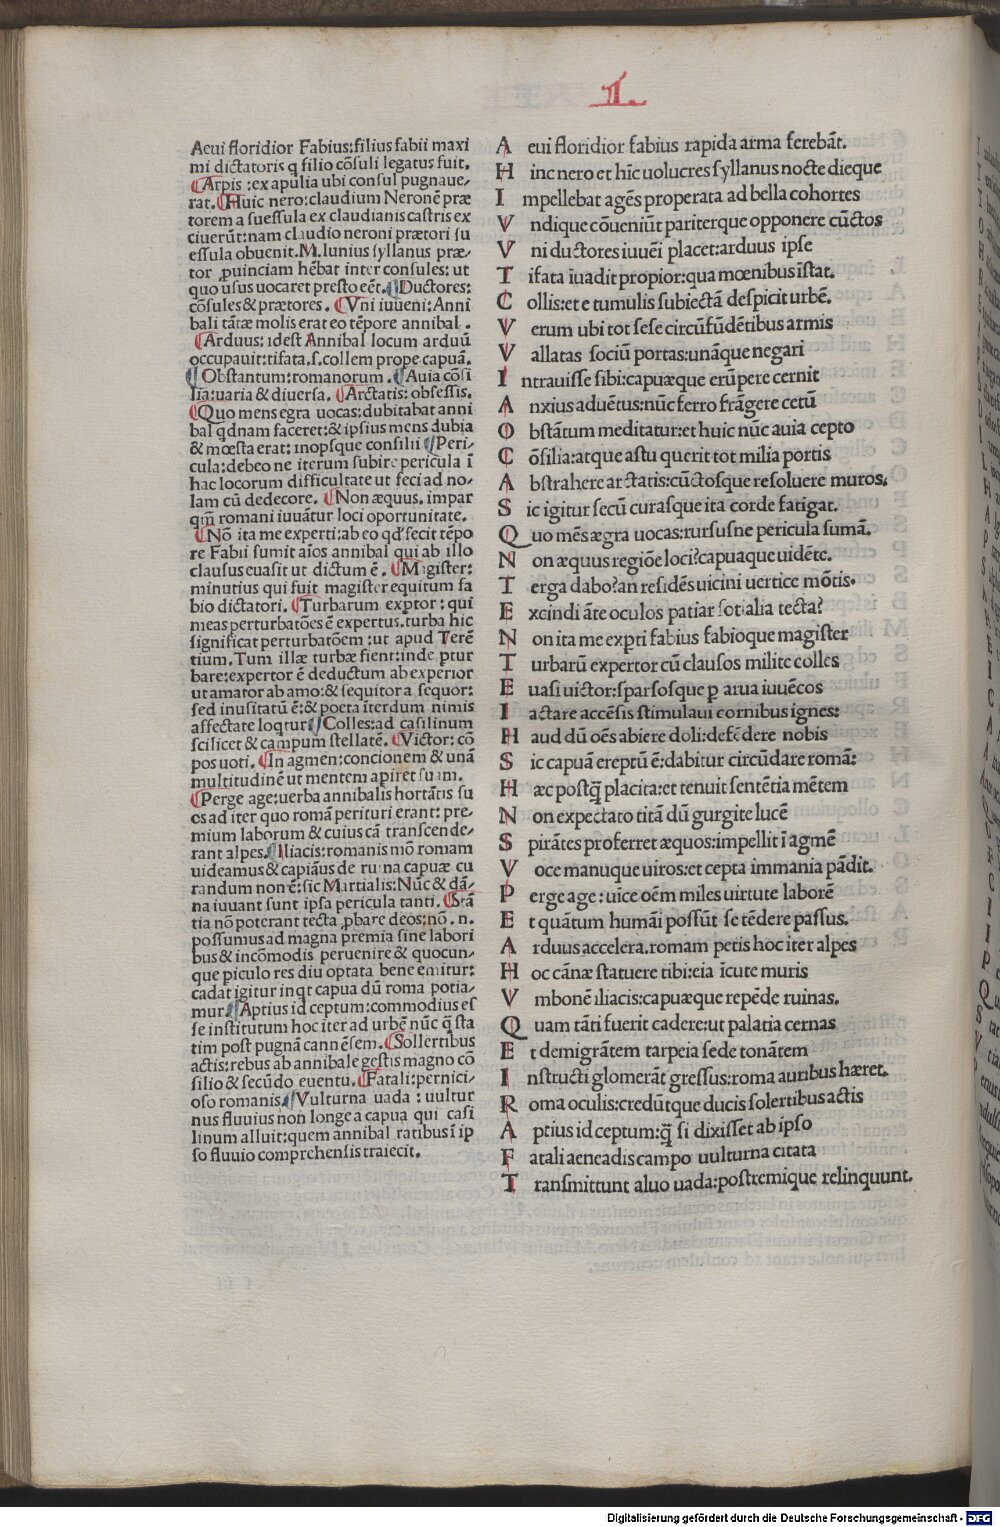 II.
Aeui floridior Fabius: filius fabii maxi
mi dictatoris q filio cõsuli legatus fuit.
Arpis : ex apulia ubi consul pugnaue/
rat. Huic nero: claudium Neronẽ præ
torem a suessula ex claudianis castris ex
ciuerũt: nam claudio neroni prætori su
essula obuenit. M. Iunius syllanus præ/
tor ꝓuinciam hẽbat inter consules: ut
quo usus uocaret presto eẽt. Ductores:
cõsules & prætores. Vni iuueni: Anni
bali tãtæ molis erat eo tẽpore annibal.
Arduus: idest Annibal locum arduũ
occupauit: tifata .s. collem prope capuã.
Obstantum: romanorum. Auia cõsi
lia: uaria & diuersa. Arctatis: obsessis.
Quo mens egra uocas: dubitabat anni
bal qdnam faceret: & ipsius mens dubia
& mœsta erat: inopsque consilii Peri/
cula: debeo ne iterum subire pericula ĩ
hac locorum difficultate ut feci ad no/
lam cũ dedecore. Non æquus, impar
qm̃ romani iuuãtur loci oportunitate.
Nõ ita me experti: ab eo qd' fecit tẽpo
re Fabii sumit aĩos annibal qui ab illo
clausus euasit ut dictum ẽ. Magister:
minutius qui fuit magister equitum fa
bio dictatori. Turbarum exptor: qui
meas perturbatões ẽ expertus. turba hic
significat perturbatõem: ut apud Terẽ
tium. Tum illæ turbæ fient: inde ptur
bare: expertor ẽ deductum ab experior
ut amator ab amo: & sequitor a sequor:
sed inusitatũ ẽ: & poeta ĩterdum nimis
affectate loqtur Colles: ad casilinum
scilicet & campum stellatẽ. Victor: cõ
pos uoti. In agmen: concionem & unã
multitudinẽ ut mentem apiret suam.
Perge age: uerba annibalis hortãtis su
os ad iter quo romã perituri erant: pre/
mium laborum & cuius cã transcende/
rant alpes. Iliacis: romanis mõ romam
uideamus & capiãus de ruina capuæ cu
randum non ẽ: sic Martialis: Nũc & dã/
na iuuant sunt ipsa pericula tanti. Stã
tia nõ poterant tecta ꝓbare deos: nõ .n.
possumus ad magna premia sine labori
bus & incõmodis peruenire & quocun/
que piculo res diu optata bene emitur:
cadat igitur inqt capua dũ roma potia/
mur. Aptius id ceptum: commodius es
se institutum hoc iter ad urbẽ nũc q̃ sta
tim post pugnã cannẽsem. Sollertibus
actis: rebus ab annibale gestis magno cõ
silio & secũdo euentu. Fatali: pernici/
oso romanis. Vulturna uada : uultur
nus fluuius non longe a capua qui casi
linum alluit: quem annibal ratibus ĩ ip
so fluuio comprehensis traiecit.
A eui floridior fabius rapida arma ferebãt.
H inc nero et hĩc uolucres syllanus nocte dieque
I mpellebat agẽs properata ad bella cohortes
V ndique cõueniũt pariterque opponere cũctos
V ni ductores iuuẽi placet: arduus ipse
T ifata ĩuadit propior: qua mœnibus ĩstat.
C ollis: et e tumulis subiectã despicit urbẽ.
V erum ubi tot sese circũfũdẽtibus armis
V allatas sociũ portas: unãque negari
I ntrauisse sibi: capuæque erũpere cernit
A nxius aduẽtus: nũc ferro frãgere cetũ
O bstãtum meditatur: et huic nũc auia cepto
C õsilia: atque astu querit tot milia portis
A bstrahere arctatis: cũctosque resoluere muros.
S ic igitur secũ curasque ita corde fatigat.
Q uo mẽs ægra uocas: rursusne pericula sumã.
N on æquus regiõe loci? capuaque uidẽte.
T erga dabo? an residẽs uicini uertice mõtis.
E xcindi ãte oculos patiar sotialia tecta?
N on ita me expti fabius fabioque magister
T urbarũ expertor cũ clausos milite colles
E uasi uictor: sparsosque p arua iuuẽcos
I actare accẽsis stimulaui cornibus ignes:
H aud dũ oẽs abiere doli: defẽdere nobis
S ic capuã ereptũ ẽ: dabitur circũdare romã:
H æc postq̃ placita: et tenuit sentẽtia mẽtem
N on expectato titã dũ gurgite lucẽ
S pirãtes proferret æquos: impellit ĩ agmẽ
V oce manuque uiros: et cepta immania pãdit.
P erge age : uĩce oẽm miles uirtute laborẽ
E t quãtum humãi possũt se tẽdere passus.
A rduus accelera. romam petis hoc iter alpes
H oc cãnæ statuere tibi: eia ĩcute muris
V mbonẽ iliacis: capuæque repẽde ruinas.
Q uam tãti fuerit cadere: ut palatia cernas
E t demigrãtem tarpeia sede tonãtem
I nstructi glomerãt gressus: roma auribus hæret.
R oma oculis: credũtque ducis solertibus actis
A ptius id ceptum: q̃ si dixisset ab ipso
F atali aeneadis campo uulturna citata
T ransmittunt aluo uada: postremique relinquunt.
Digitalisierung gefördert durch die Deutsche Forschungsgemeinschaft - DFG